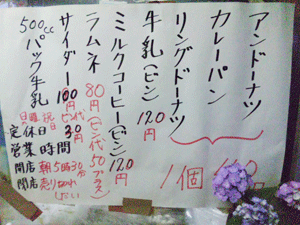 アンドーナツ
カレーパン
リングドーナツ
1個
牛乳(ビン)120円
ミルクコーヒー(ビン)120円
ラムネ 80円(ビン代50プラス)
サイダー100円 ビン代30円
500cc パック牛乳
定休日 日曜 祝日
営業時間
開店 朝5時30分
閉店 売り切れしだい